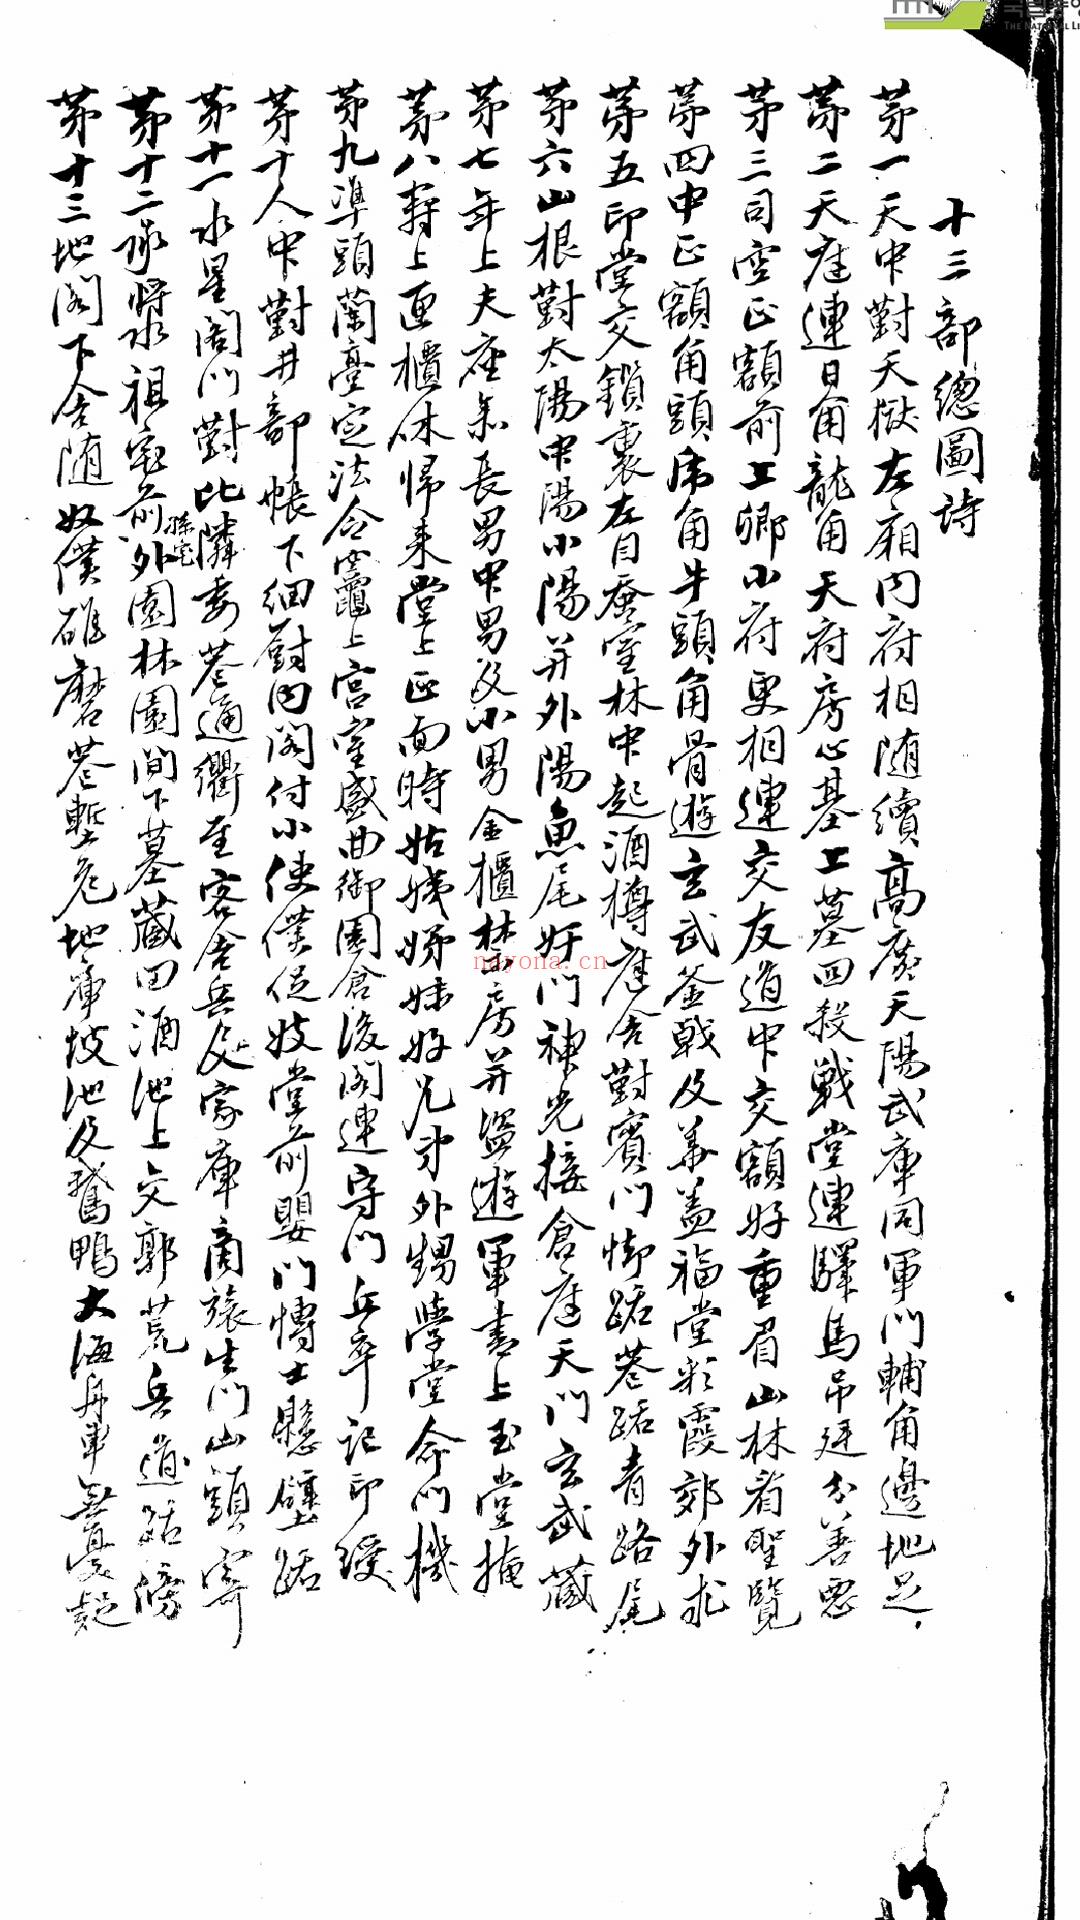 十三部總圖詩
第一天中對天獄左廂內府相随續高廣天陽武庫同軍門輔角邊地足
第二天庭連日角龍角天府房心基上墓四殺戰堂連驛馬吊廷分善惡
第三司空正額前上卿小府更相連交友道中交額好重眉山林看聖覽
第四中正額角頭虎角牛頭角骨遊玄武釜戟及華盖福堂彩霞郊外求
第五印堂交鎖裏左目蚕室林中起酒樽庭舍對賓門 路巷路青路尾
第六山根對太陽中陽小陽并外陽魚尾奸門神光接倉庭天門玄武藏
第七年上夫座 長男中男及小男金櫃禁房并盜遊軍書上玉堂掩
第八壽上 櫃 歸来堂上正面時姑姨姊妹好兄弟外甥學堂命門機
第九準頭蘭臺定法令竈上宮室盛曲御園倉後閣連守門兵卒記印綬
第十人中對井部帳下細廚內閣付小使僕從妓堂前嬰門博士懸壁路
第十一水星閣門對比隣委巷通衢至客舍兵及家庫商旅生門山頭寄
第十二承將水祖宅前孫宅外園林園間下墓藏田酒池上交郭荒兵道路傍
第十三地閣下舍随奴僕碓磨巷塹危地庫坡池及鵞鴨大海舟車無憂疑
THE NATIONAL LI
nayona.cn